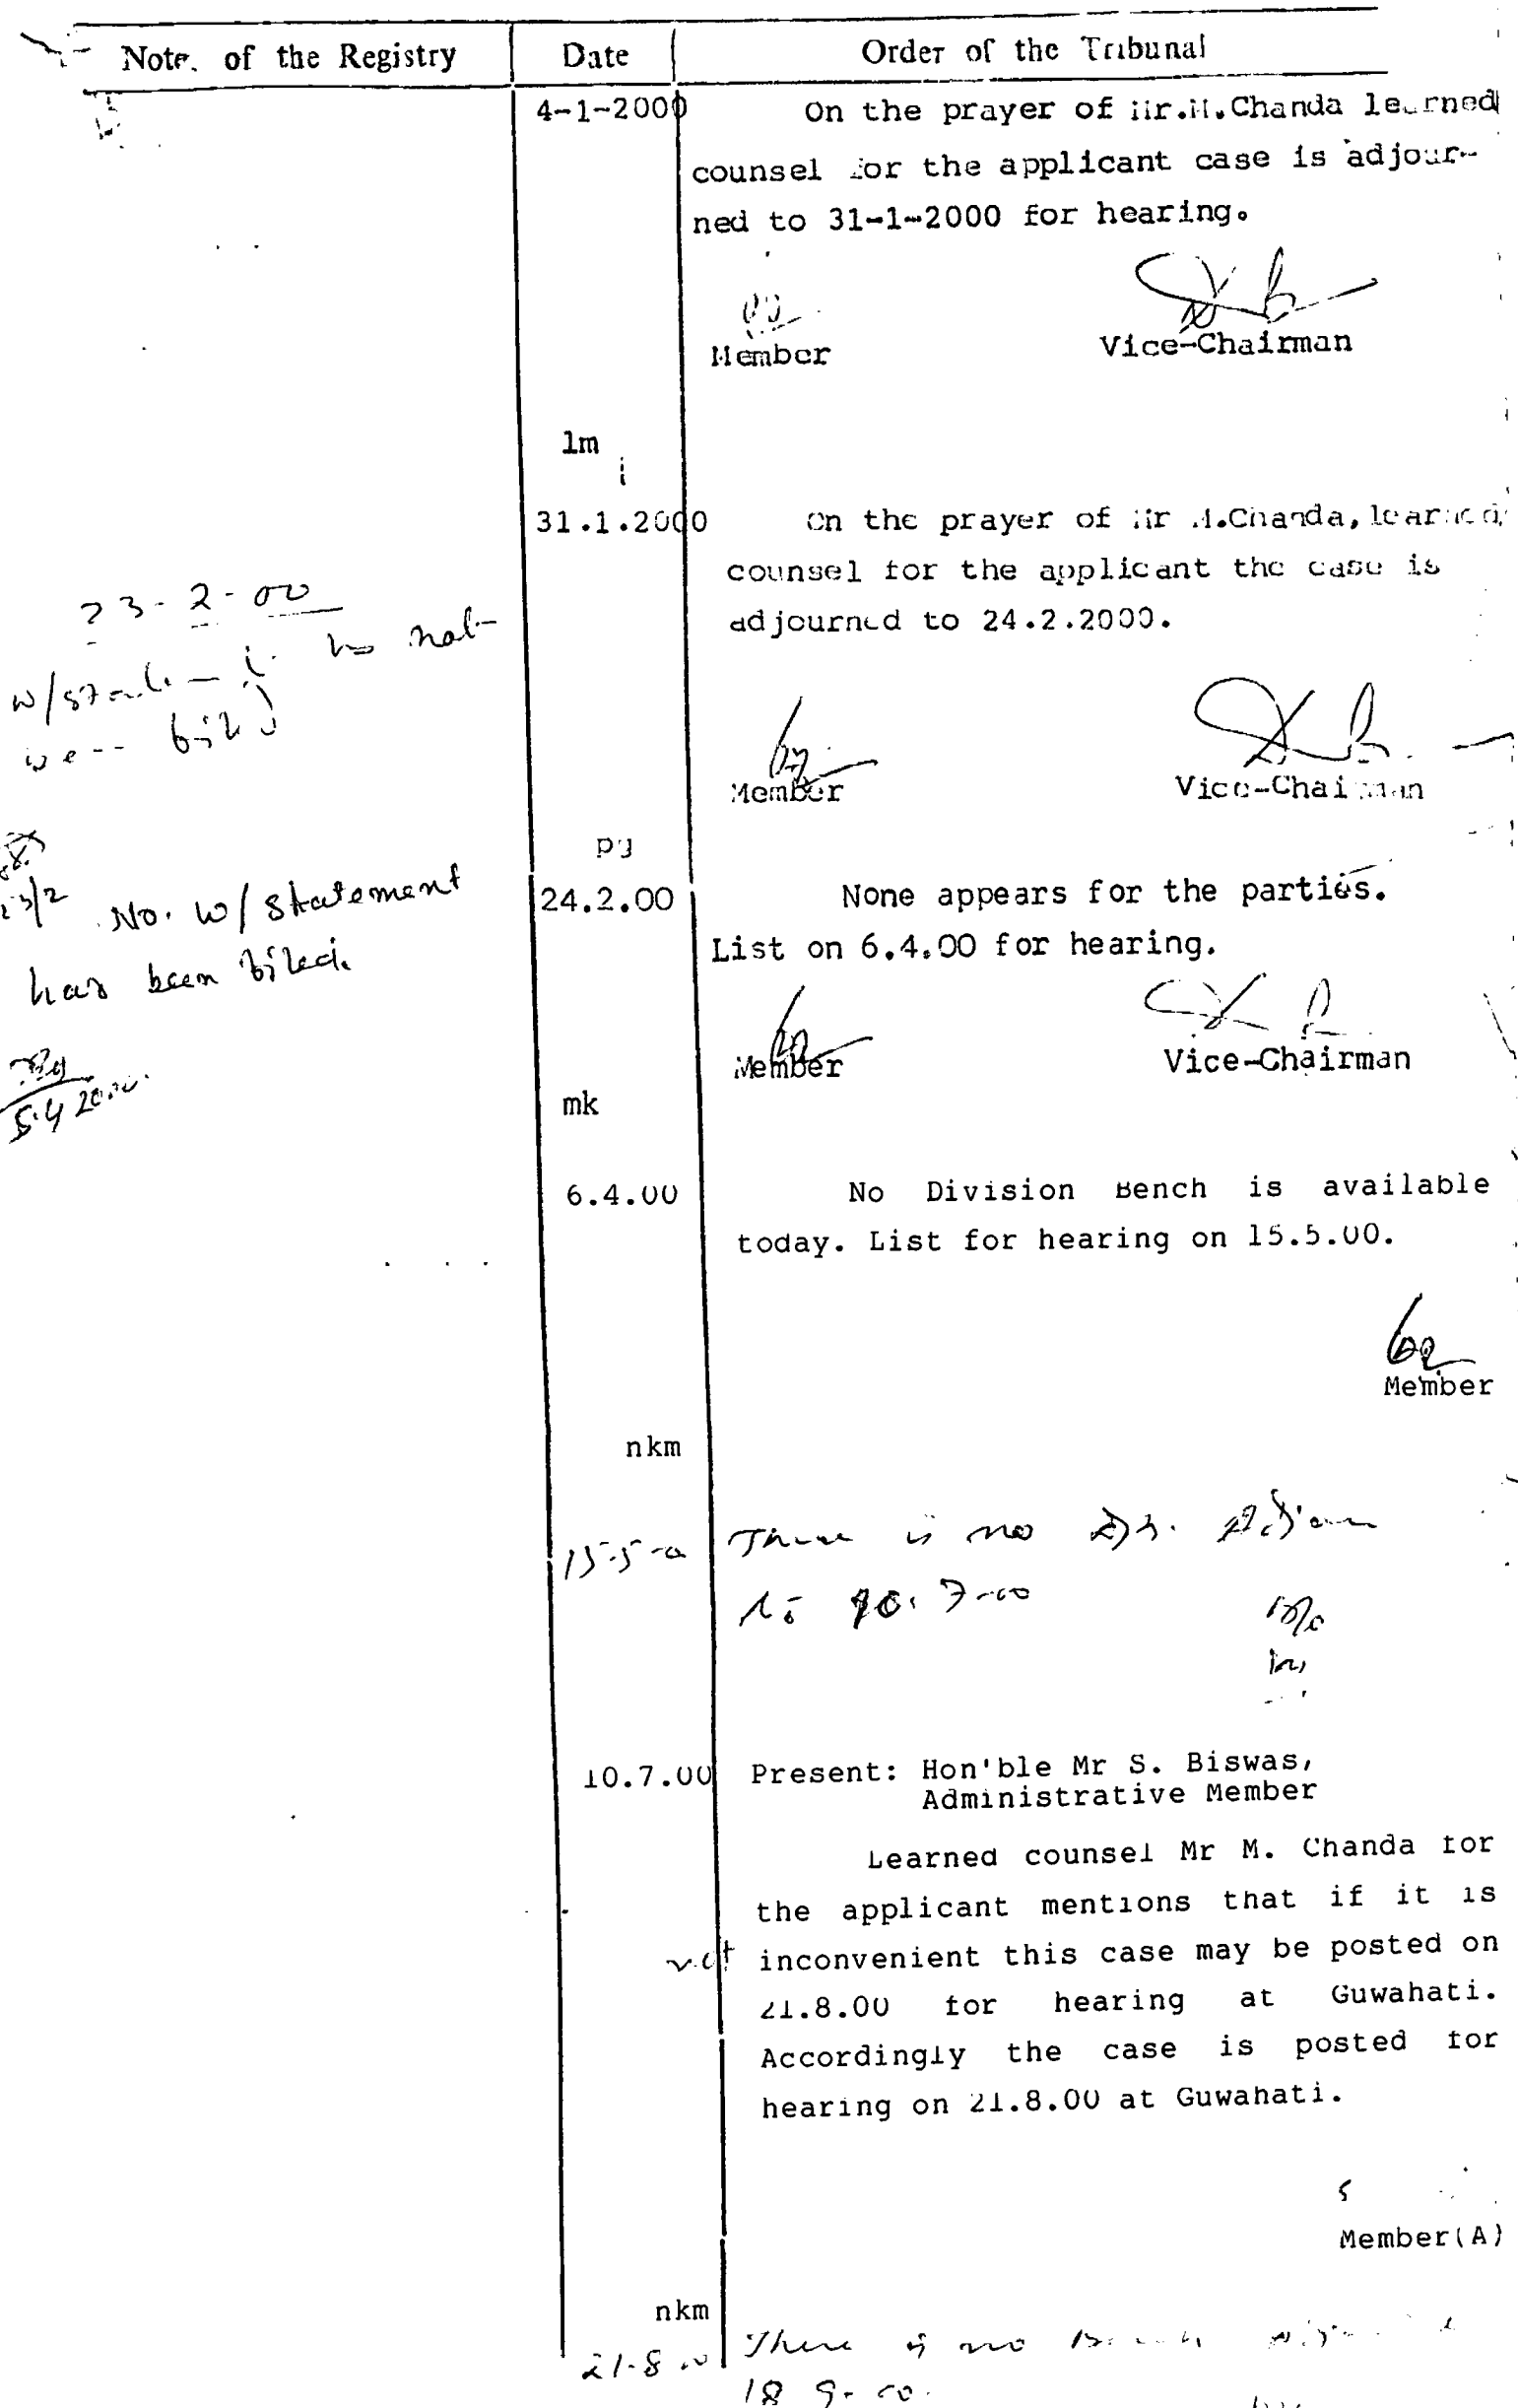 Note. of the Registry
Date
Order of the Tribunal
4-1-2000
On the prayer of Mr.M.Chanda learned
counsel for the applicant case is adjour-
ned to 31-1-2000 for hearing.
Member
Vice-Chairman
lm
31.1.2000
On the prayer of Mr M.Chanda, learned
counsel for the applicant the case is
adjourned to 24.2.2000.
23-2-00
Member
Vice-Chairman
pg
24.2.00
None appears for the parties.
List on 6.4.00 for hearing.
No. W/ Statement
has been filed.
5.4.2000
Member
Vice-Chairman
mk
6.4.00
No Division Bench is available
today. List for hearing on 15.5.00.
Member
nkm
15-5-00
There is no
10.7-00
10.7.00
Present: Hon'ble Mr S. Biswas,
Administrative Member
Learned counsel Mr M. Chanda for
the applicant mentions that if it is
not inconvenient this case may be posted on
21.8.00 for hearing at Guwahati.
Accordingly the case is posted for
hearing on 21.8.00 at Guwahati.
Member(A)
nkm
21-8-00
There is no Bench
18 9-00.